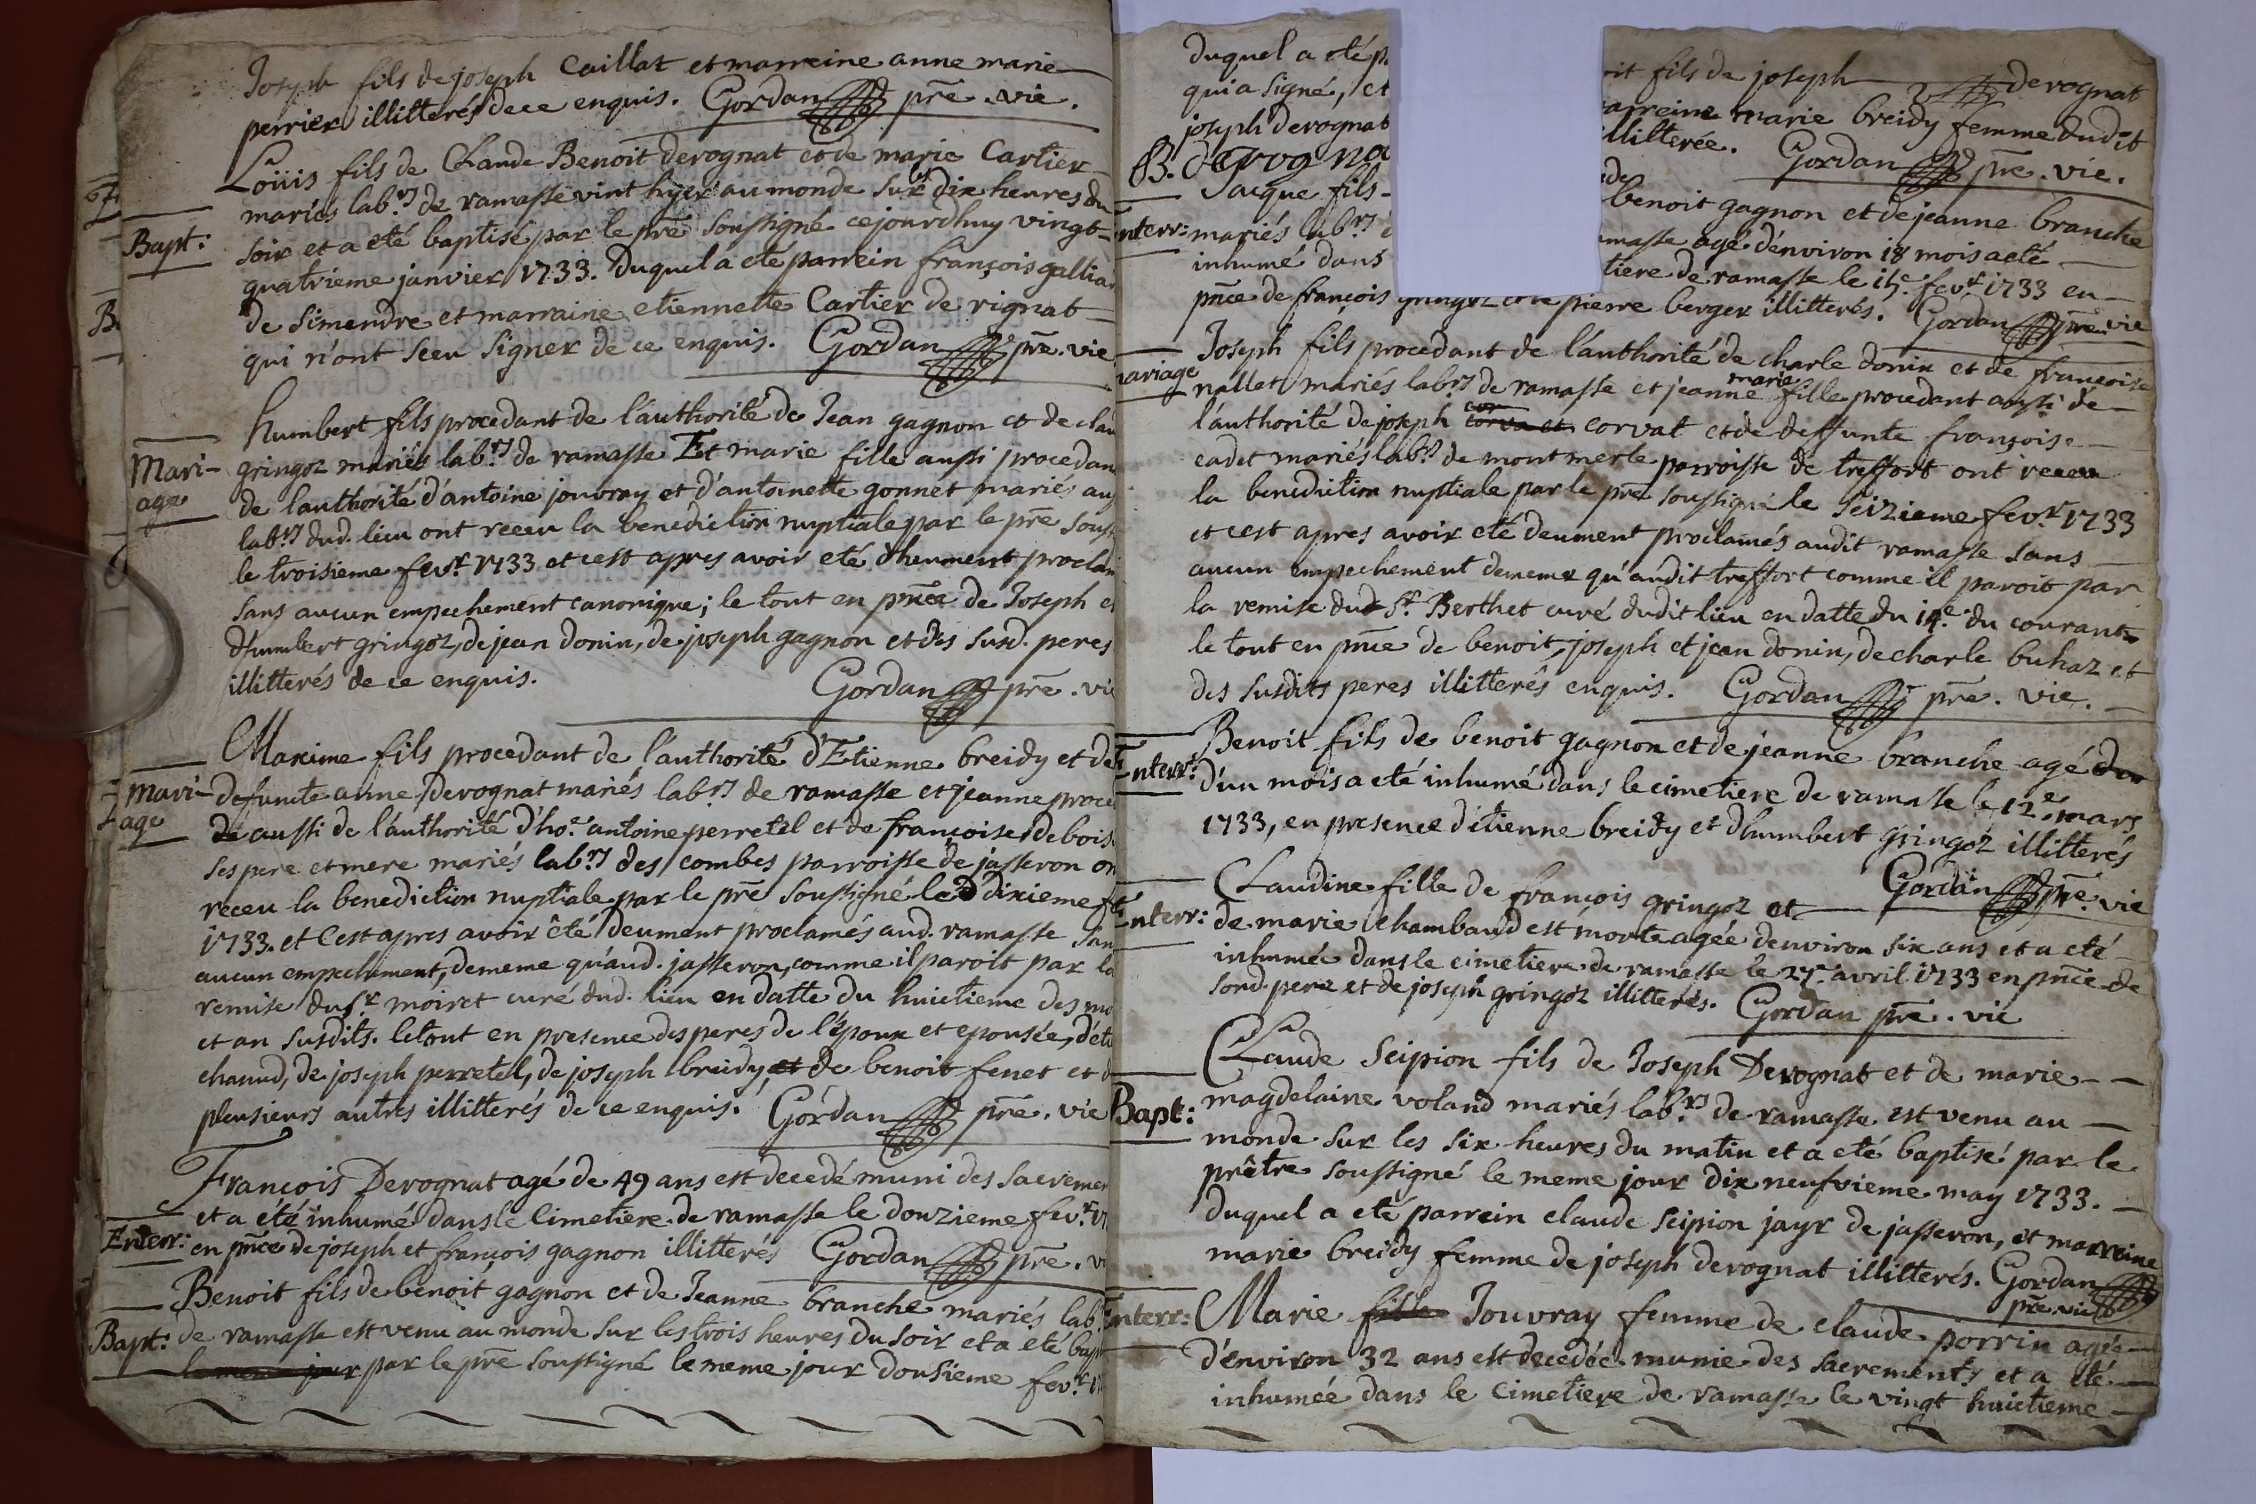 Joseph fils de joseph Caillat et marreine anne marie
perrier illitterés de ce enquis. Gordan pre. vic.
Loüis fils de Claude Benoit derognat et de marie Cartier
Bapt: mariés lab.rs de ramasse vint hÿer au monde sur les dix heures du
soir et a eté baptisé par le pre soussigné cejourdhuy vingt-
quatrieme janvier 1733. duquel a eté parrein françois gallia
de simendre et marraine etiennette Cartier de rignat
qui n'ont sceu signer de ce enquis. Gordan pre. vic
humbert fils procedant de l'authorité de Jean gagnon et de clau
Mari-age gringoz mariés lab.rs de ramasse Et marie fille aussi procedan
de l'authorité d'antoine jouvray et d'antoinette gonnet mariés au
lab.rs dud. lieu ont receu la benediction nuptiale par le pre souss
le troisieme fev.r 1733 et cest apres avoir eté dheument proclam
sans aucun empechement canonique; le tout en pnce de Joseph et
d'humbert gringoz, de jean donin, de joseph gagnon et des susd. peres
illitterés de ce enquis. Gordan pre. vic
Maxime fils procedant de l'authorité d'Etienne breidy et de
Mari-age defuncte anne Derognat mariés lab.rs de ramasse et jeanne proce
de aussi de l'authorité d'ho.e antoine perretel et de françoise debois
ses pere et mere mariés lab.rs des combes parroisse de jasseron on
receu la benediction nuptiale par le pre soussigné le dixieme fe
1733. et C'est apres avoir êté deument proclamés aud. ramasse san
aucun empechement, dememe qu'aud. jasseron, comme il paroit par la
remise du s.r moiret curé dud. lieu en datte du huictieme des mo
et an susdits. le tout en presence des peres de l'époux et epousée, d'eti
chanud, de joseph perretel, de joseph breidy, et de benoit fenet et d
plusieurs autres illitterés de ce enquis. Gordan pre. vic
François Derognat agé de 49 ans est decedé muni des sacremen
et a été inhumé dans le Cimetiere de ramasse le douzieme fev.r 17
Enterr: en pnce de joseph et françois gagnon illitterés Gordan pre. vi
Benoit fils de benoit gagnon et de Jeanne branche mariés lab.
Bapt: de ramasse est venu au monde sur les trois heures du soir et a eté bap
le meme jour par le pre soussigné le meme jour dousieme fev.r 17
duquel a eté p
qui a signé, et
joseph derognat
B. derogna
Jacque fils
nterr: mariés lab.rs d
inhumé dans
pnce de françois gringoz et de pierre berger illitterés. Gordan pre. vic
oit fils de joseph derognat
arreine marie breidy femme dudit
illiterée. Gordan pre. vic.
de
benoit gagnon et de jeanne branche
amasse agé d'environ 18 mois a eté
tiere de ramasse le 15.e fev.r 1733 en
Joseph fils procedant de l'authorité de charle donin et de francoise
ariage nallet mariés lab.rs de ramasse et jeanne marie fille procedant aussi de
l'authorité de joseph corva et corvat et de deffunte françoise
cadet mariés lab.rs de montmerle parroisse de treffort ont receu
la benediction nuptiale par le pre soussigné le seizieme fev.r 1733
et cest apres avoir eté deument proclamés audit ramasse sans
aucun empechement dememe qu'audit treffort comme il paroit par
la remise dud s.r Berthet curé dudit lieu en datte du 14.e du courant
le tout en pnce de benoit, joseph et jean donin, de charle buhaz et
des susdits peres illitterés enquis. Gordan pre. vic.
Benoit fils de benoit gagnon et de jeanne branche agé
nterr: d'un mois a eté inhumé dans le cimetiere de ramasse le 12.e mars
1733, en presence d'etienne breidy et d'humbert gringoz illitterés
Gordan pre. vic
Claudine fille de françois gringoz et
nterr: de marie Chambaud est morte agée denviron six ans et a eté
inhumée dans le cimetiere de ramasse le 27.e avril 1733 en pnce de
sond. pere et de joseph gringoz illitterés. Gordan pre. vic
Claude Scipion fils de Joseph Derognat et de marie
Bapt: magdelaine voland mariés lab.rs de ramasse est venu au
monde sur les six heures du matin et a eté baptisé par le
prêtre soussigné le meme jour dix neufvieme may 1733.
duquel a eté parrein claude scipion jayr de jasseron, et marreine
marie breidy femme de joseph derognat illitterés. Gordan
pre. vic
nterr: Marie fille Jouvray femme de claude porrin agée
d'environ 32 ans est decedée munie des sacrements et a eté
inhumée dans le Cimetiere de ramasse le vingt huictieme